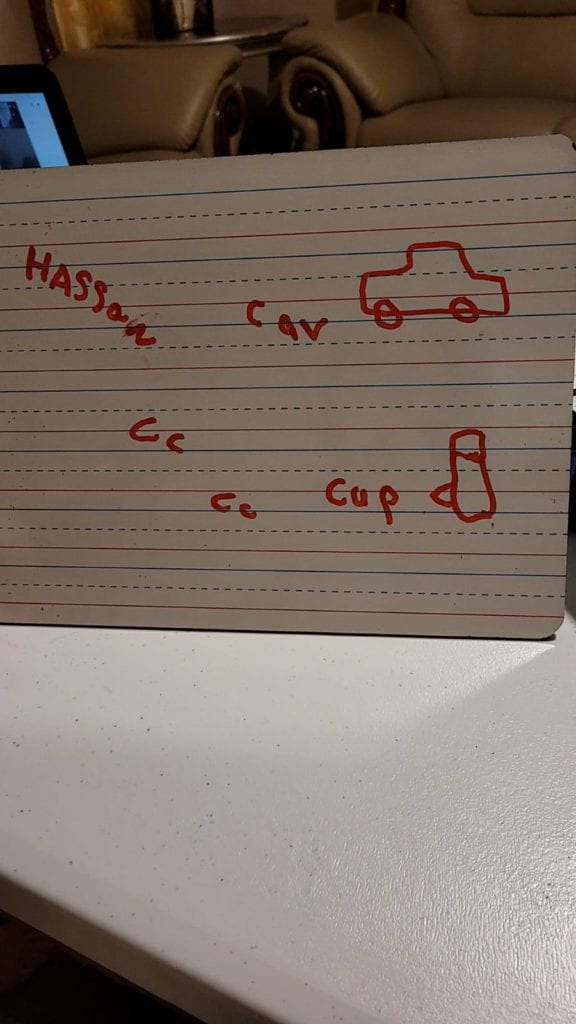 HASSan
car
Cc
Cc cup